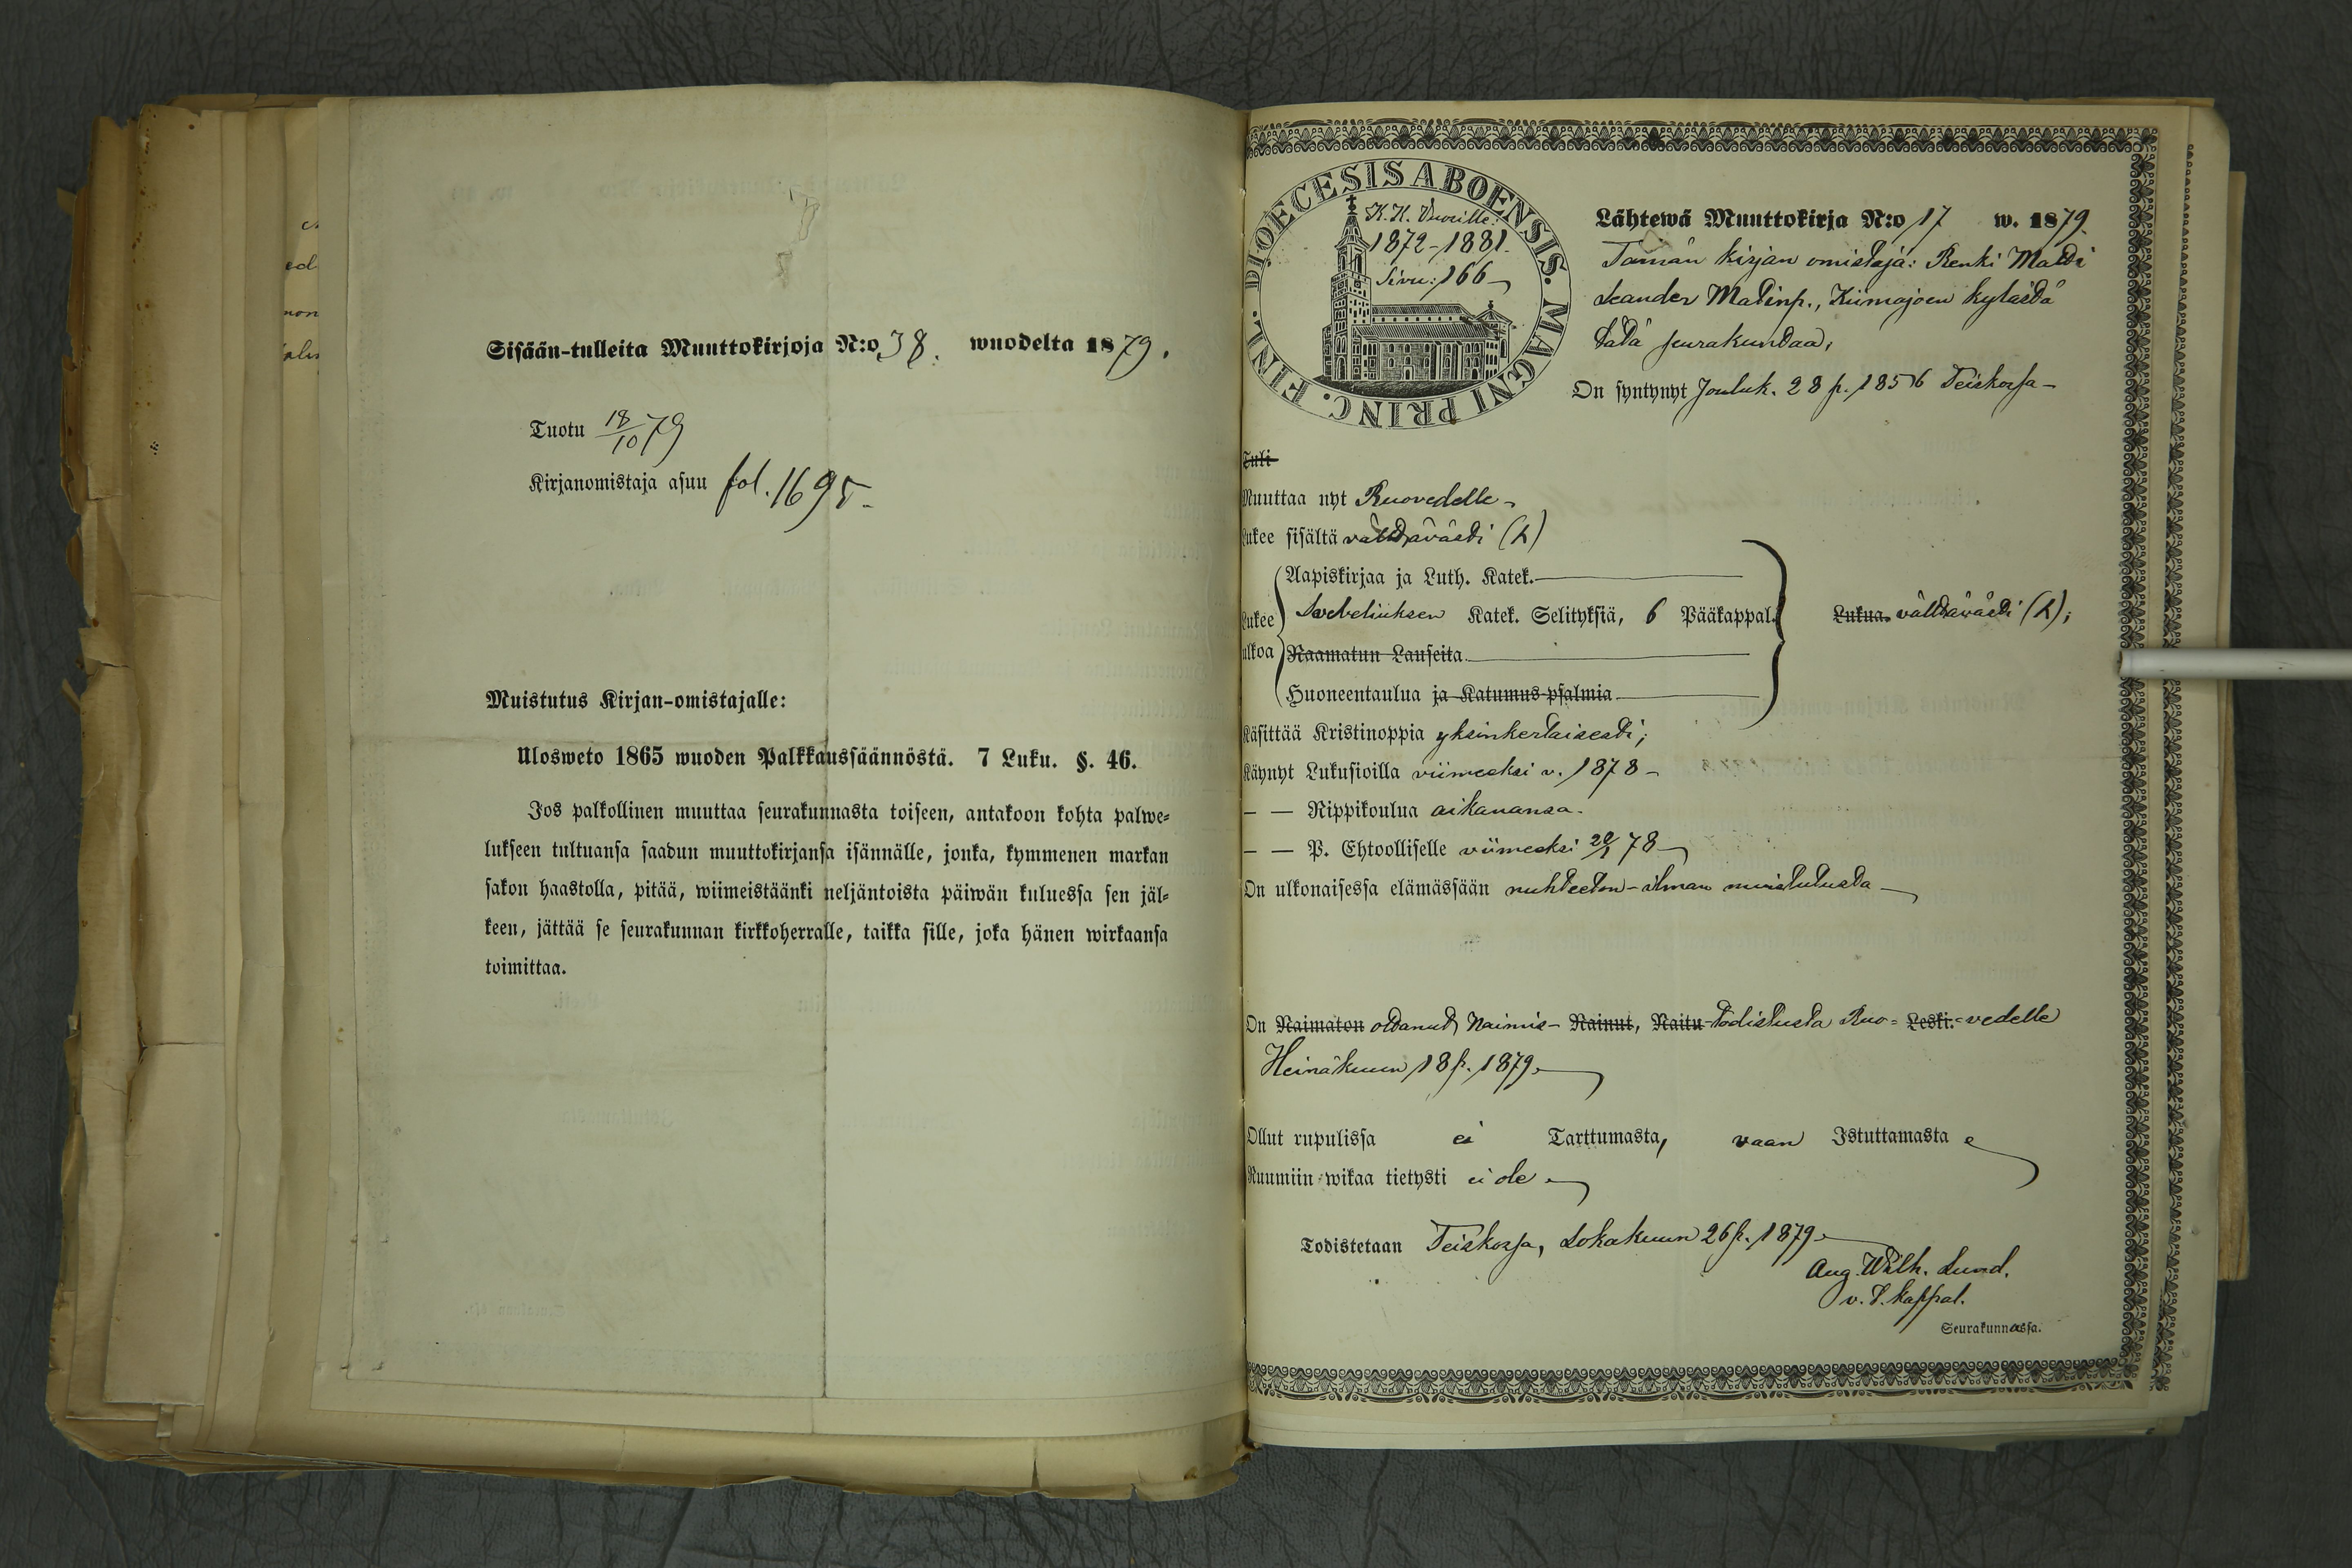 Sisään-tulleita Muuttokirjoja N:o 38. wuodelta 1879.
Tuotu 18/10 79
Kirjanomistaja asuu fol. 1695.
Muistutus Kirjan-omistajalle:
Ulosweto 1865 wuoden Palkkaussäännöstä. 7 Luku. §. 46.
Jos palkollinen muuttaa seurakunnasta toiseen, antakoon kohta palwe-
lukseen tultuansa saadun muuttokirjansa isännälle, jonka, kymmenen markan
sakon haastolla, pitää, wiimeistäänki neljäntoista päiwän kuluessa sen jäl-
keen, jättää se seurakunnan kirkkoherralle, taikka sille, joka hänen wirkaansa
toimittaa.
DIOECESIS ABOENSIS. MAGNI PRINC. FINL.
K.K. Vuosille:
1872-1881.
Sivu: 166
Lähtewä Muuttokirja N:o 17 w. 1879.
Tämän kirjan omistaja: Renki Matti
Leander Matinp., Kiimajoen kylästä
tätä seurakuntaa,
On syntynyt Jouluk. 28 p. 1856 Teiskossa
Tuli
Muuttaa nyt Ruovedelle
Lukee sisältä välttävästi (L)
Aapiskirjaa ja Luth. Katek.
Lukee ulkoa Svebeliuksen Katek. Selityksiä, 6 Pääkappal. Lukua. välttävästi (L);
Raamatun Lauseita
Huoneentaulua ja Katumus-psalmia
Käsittää Kristinoppia yksinkertaisesti;
Käynyt Lukusioilla viimeeksi v. 1878
— — Rippikoulua aikanansa.
— — P. Ehtoolliselle viimeeksi 78
On ulkonaisessa elämässään nuhteeton - ilman muistutusta
On Naimaton ottanut Naimis- Nainut, Naitu todistusta Ruo= Leski. =vedelle
Heinäkuun 18 p. 1879.
Ollut rupulissa ei Tarttumasta, vaan Istuttamasta
Ruumiin wikaa tietysti ei ole
Todistetaan Teiskossa, Lokakuun 26 p. 1879.
Aug. Wilh. Lund.
v. T. kappal.
Seurakunnassa.